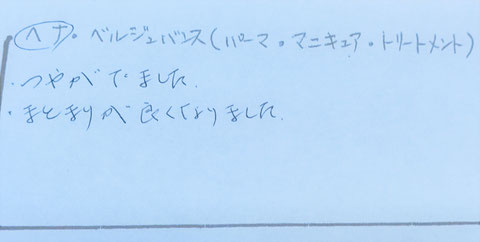 ヘナ・ベルジュバンス(パーマ・マニキュア・トリートメント)
・つやがでました.
・まとまりが良くなりました.